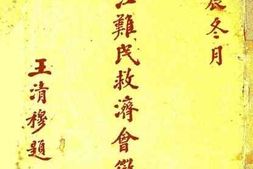 辰冬月
江難民救濟會徵
王清穆題